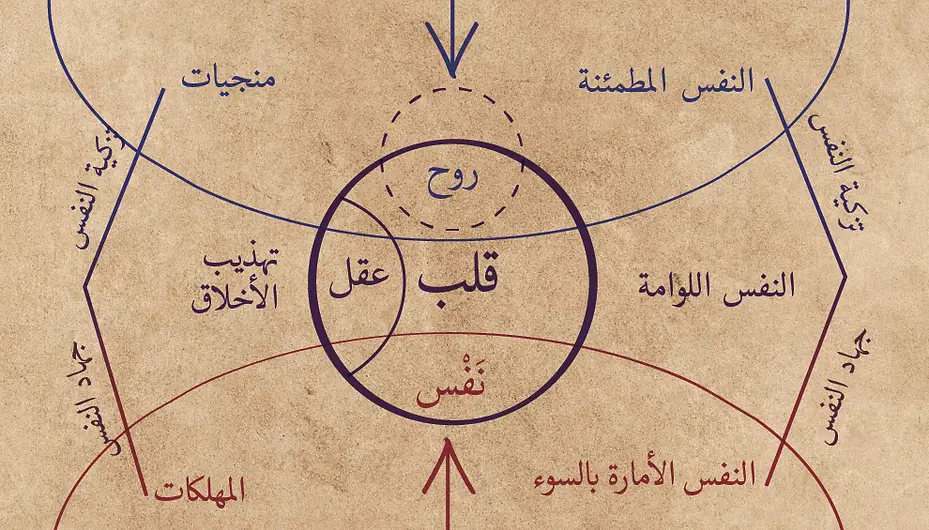 النفس المطمئنة
منجيات
تزكية النفس
تزكية النفس
روح
النفس اللوامة
قلب
عقل
تهذيب
الأخلاق
جهاد النفس
جهاد النفس
نَفْس
النفس الأمارة بالسوء
المهلكات